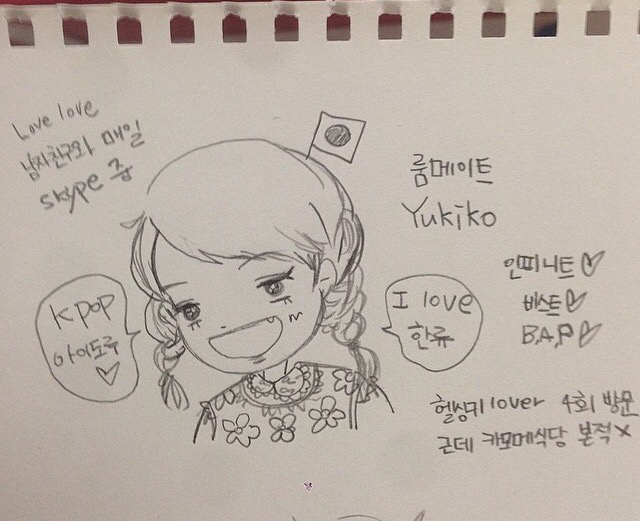 Love love
남자친구와 매일
skype 중
룸메이트
Yukiko
Kpop
아이도루
♡
I love
한류
인피니트♡
비스트♡
B.A.P♡
헬싱키 lover 4회 방문
근데 카모메식당 본적 X